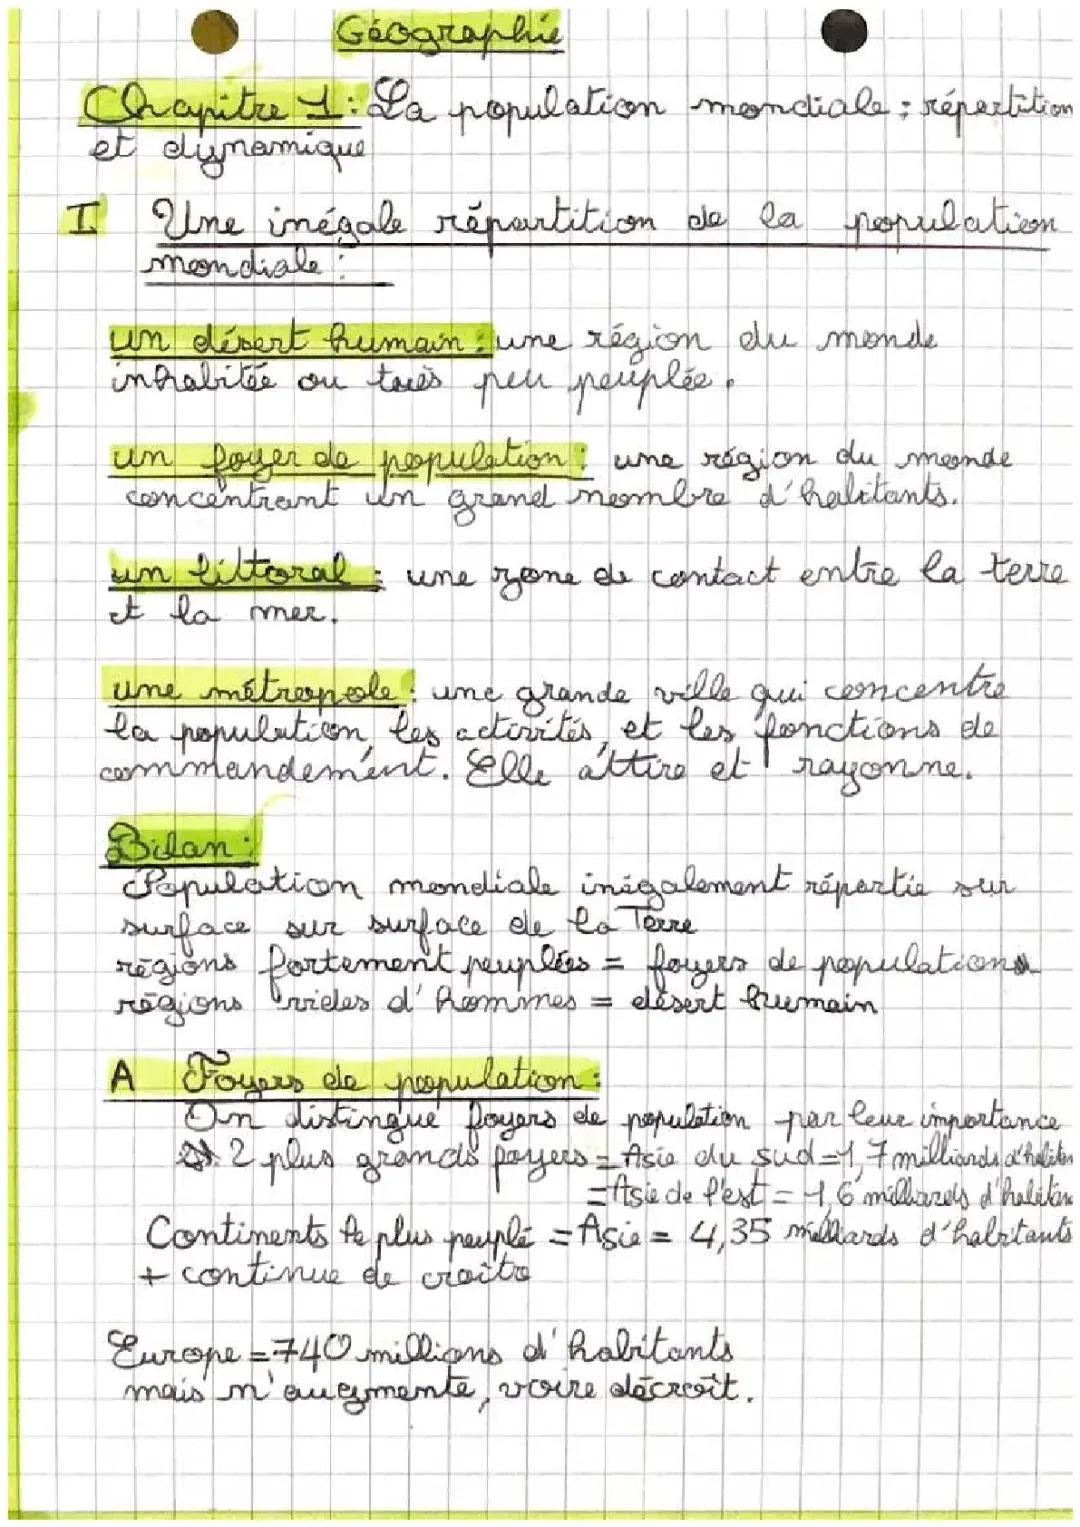 Géographie
Chapitre 1 : La population mondiale : répartition
et dynamique
I Une inégale répartition de la population
mondiale :
un désert humain : une région du monde
inhabitée ou très peu peuplée.
un foyer de population : une région du monde
concentrant un grand nombre d'habitants.
un littoral : une zone de contact entre la terre
et la mer.
une métropole : une grande ville qui concentre
la population, les activités, et les fonctions de
commandement. Elle attire et rayonne.
Bilan :
Population mondiale inégalement répartie sur
surface sur surface de la Terre
régions fortement peuplées = foyers de populations
régions vides d'hommes = désert humain
A Foyers de population :
On distingue foyers de population par leur importance
2 plus grands foyers = Asie du sud = 1,7 milliards d'habitan
= Asie de l'est = 1,6 milliards d'habitan
Continents le plus peuplé = Asie = 4,35 milliards d'habitants
+ continue de croitre
Europe = 740 millions d'habitants
mais n'augmente, voire décroît.